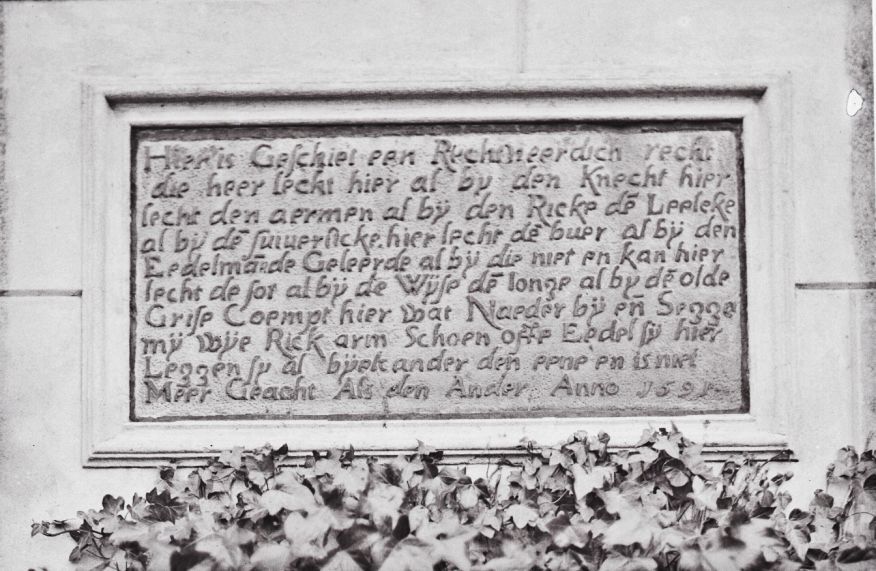 Hier is Geschiet een Rychtveerdich recht
die heer leckt hier al bÿ den Knecht hier
lecht den aermen al bÿ den Ricke dē Leeleke
al bÿ dē suiuerlicke. hier lecht dē buer al bÿ den
Eedelmā de Geleerde al bÿ die niet en kan hier
lecht de sot al bÿ de Wÿse dē Ionge al bÿ dē olde
Grise Coempt hier wat Naeder bÿ en̄ Segge
mÿ Wÿe Rick arm Schoen offe Eedel sÿ hier
Leggen sÿ al bÿ elkander den eene en is niet
Meer Geacht Als den Ander. Anno 1591